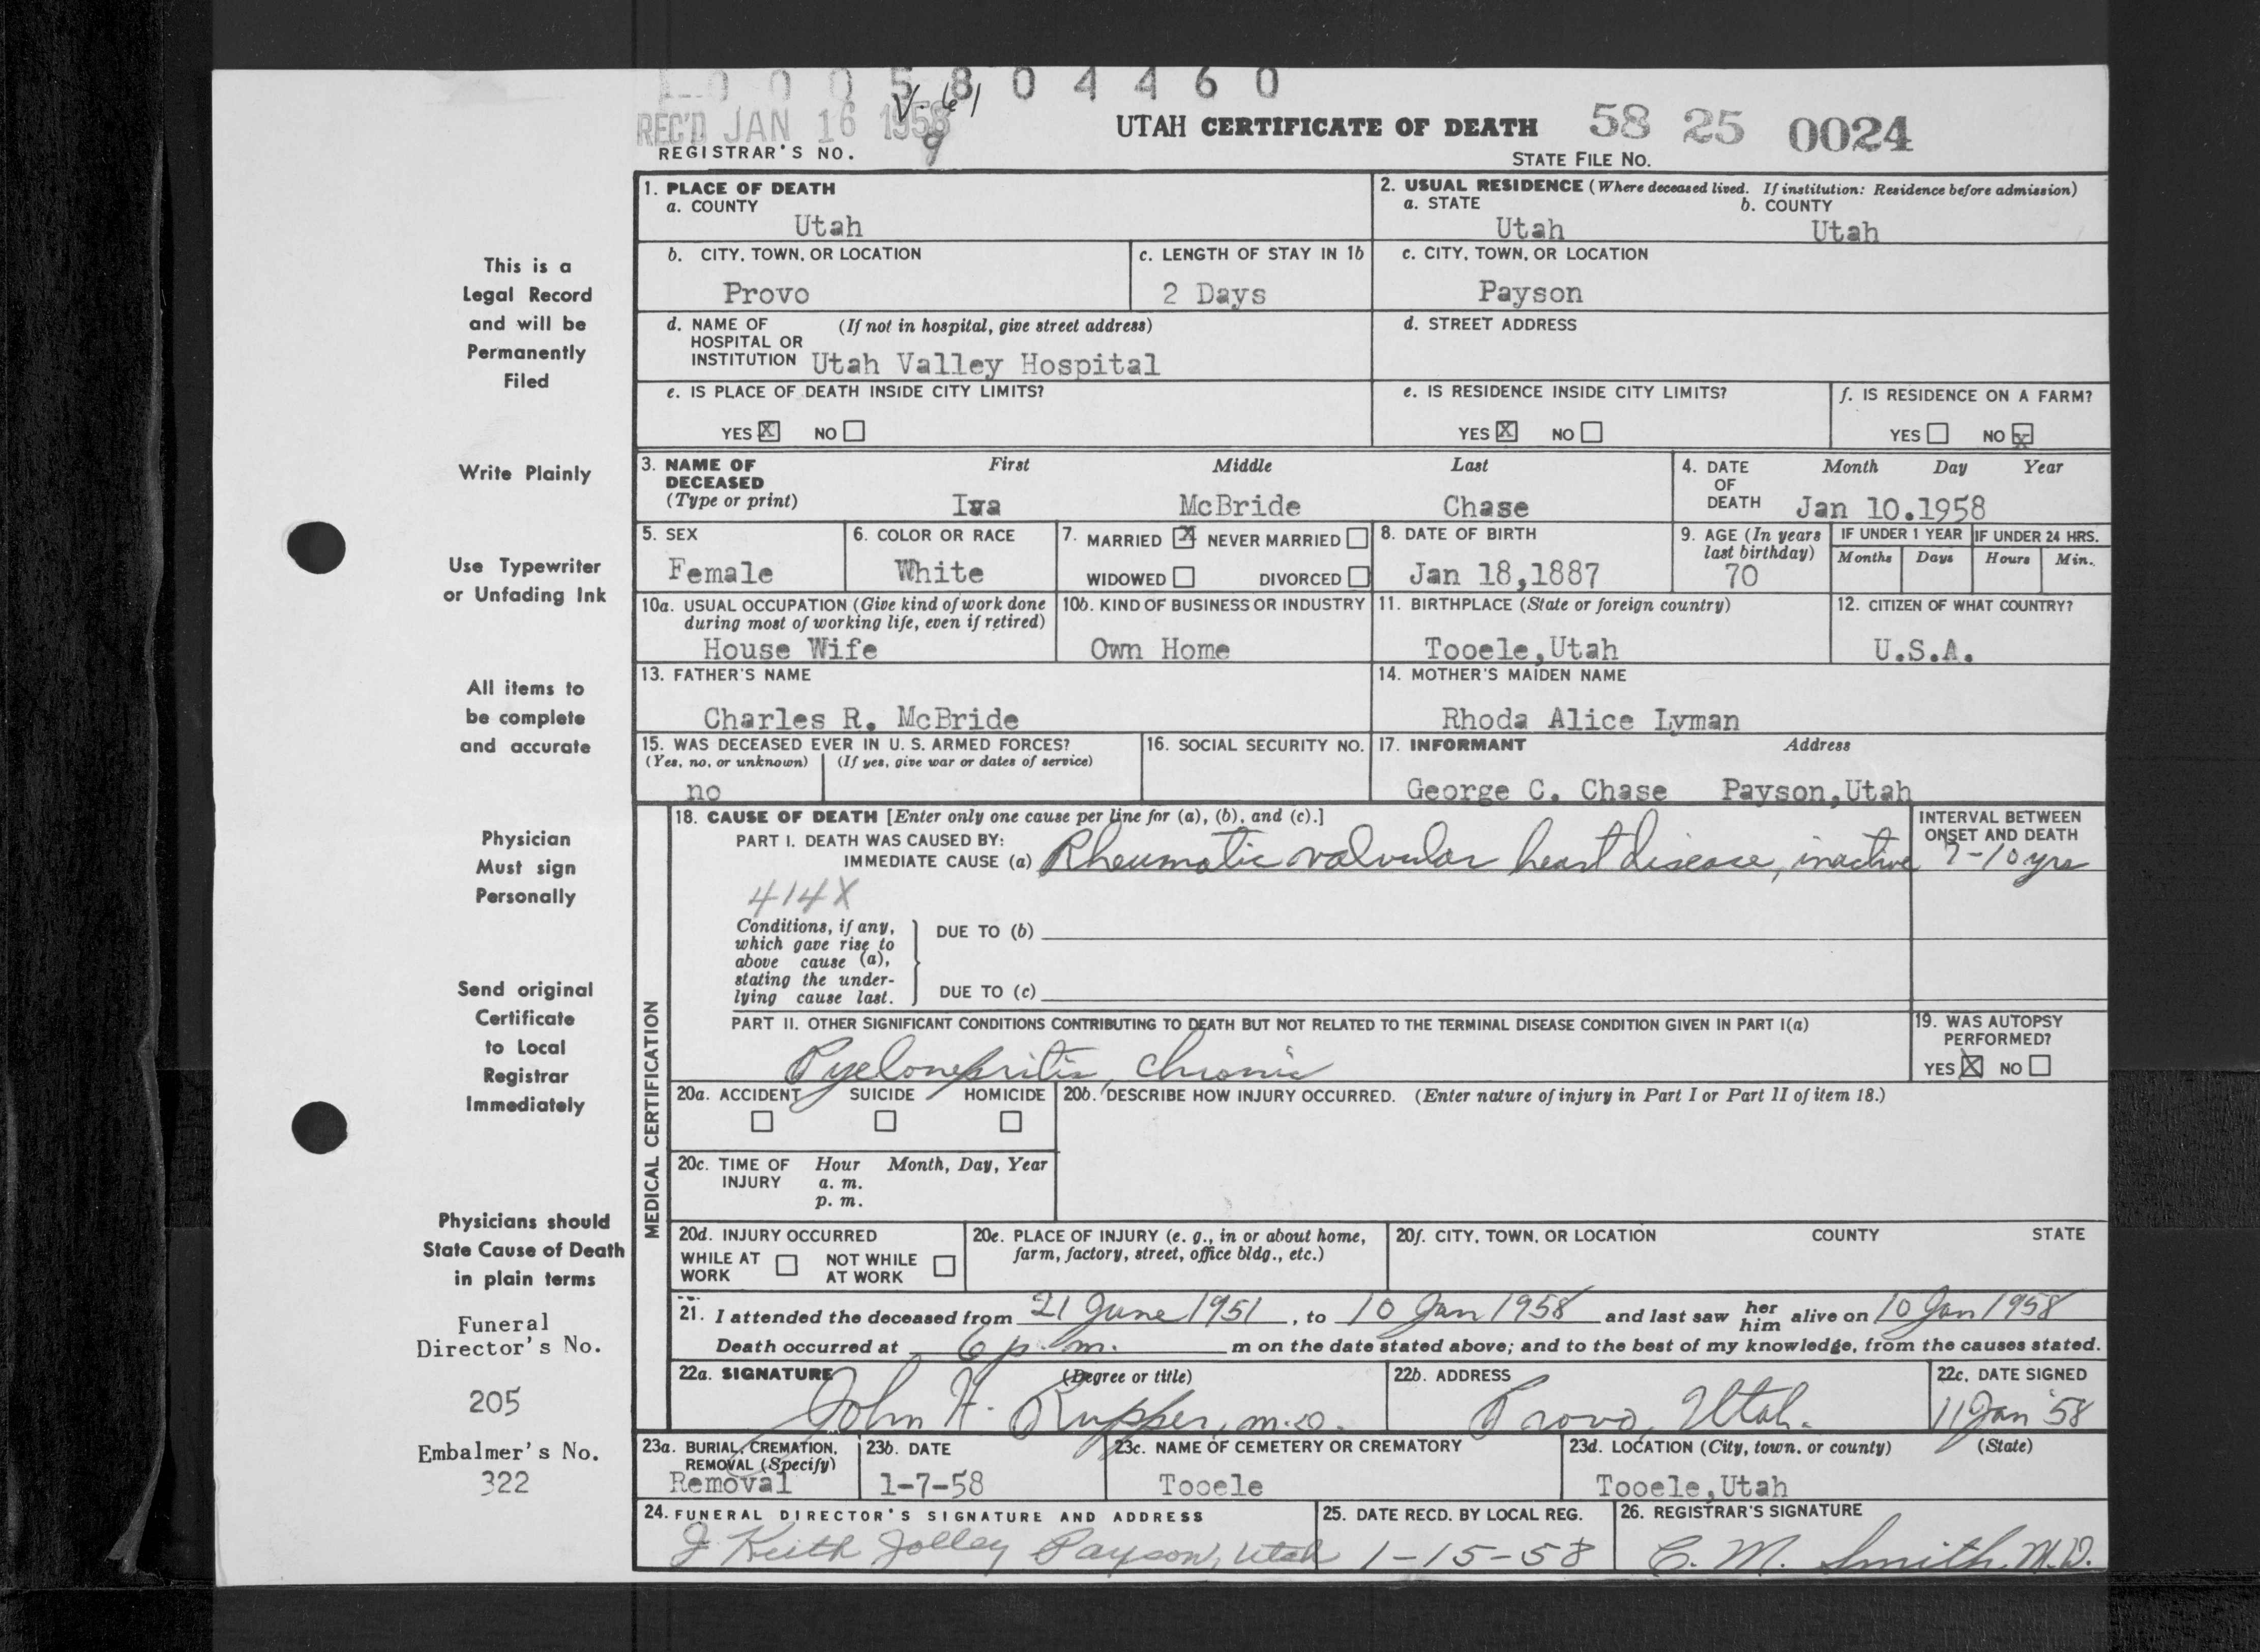 1 0 0 0 5 8 0 4 4 6 0
REC'D JAN 16 1958 V. 61
UTAH CERTIFICATE OF DEATH 58 25 0024
REGISTRAR'S NO. 9
STATE FILE NO.
1. PLACE OF DEATH
a. COUNTY
Utah
2. USUAL RESIDENCE (Where deceased lived. If institution: Residence before admission)
a. STATE b. COUNTY
Utah Utah
b. CITY, TOWN, OR LOCATION
Provo
c. LENGTH OF STAY IN 1b
2 Days
c. CITY, TOWN, OR LOCATION
Payson
d. NAME OF (If not in hospital, give street address)
HOSPITAL OR
INSTITUTION Utah Valley Hospital
d. STREET ADDRESS
e. IS PLACE OF DEATH INSIDE CITY LIMITS?
YES X NO
e. IS RESIDENCE INSIDE CITY LIMITS?
YES X NO
f. IS RESIDENCE ON A FARM?
YES NO X
3. NAME OF First Middle Last
DECEASED
(Type or print) Iva McBride Chase
4. DATE Month Day Year
OF
DEATH Jan 10.1958
5. SEX
Female
6. COLOR OR RACE
White
7. MARRIED X NEVER MARRIED
WIDOWED DIVORCED
8. DATE OF BIRTH
Jan 18,1887
9. AGE (In years
last birthday)
70
IF UNDER 1 YEAR IF UNDER 24 HRS.
Months Days Hours Min.
10a. USUAL OCCUPATION (Give kind of work done
during most of working life, even if retired)
House Wife
10b. KIND OF BUSINESS OR INDUSTRY
Own Home
11. BIRTHPLACE (State or foreign country)
Tooele,Utah
12. CITIZEN OF WHAT COUNTRY?
U.S.A.
13. FATHER'S NAME
Charles R. McBride
14. MOTHER'S MAIDEN NAME
Rhoda Alice Lyman
15. WAS DECEASED EVER IN U. S. ARMED FORCES?
(Yes, no, or unknown) (If yes, give war or dates of service)
no
16. SOCIAL SECURITY NO.
17. INFORMANT Address
George C. Chase Payson,Utah
MEDICAL CERTIFICATION
18. CAUSE OF DEATH [Enter only one cause per line for (a), (b), and (c).]
PART I. DEATH WAS CAUSED BY:
IMMEDIATE CAUSE (a) Rheumatic valvular heart disease, inactive
INTERVAL BETWEEN
ONSET AND DEATH
7-10 yrs
414X
Conditions, if any,
which gave rise to
above cause (a),
stating the under-
lying cause last.
DUE TO (b)
DUE TO (c)
PART II. OTHER SIGNIFICANT CONDITIONS CONTRIBUTING TO DEATH BUT NOT RELATED TO THE TERMINAL DISEASE CONDITION GIVEN IN PART I(a)
Pyelonepritis, chronic
19. WAS AUTOPSY
PERFORMED?
YES X NO
20a. ACCIDENT SUICIDE HOMICIDE
20b. DESCRIBE HOW INJURY OCCURRED. (Enter nature of injury in Part I or Part II of item 18.)
20c. TIME OF Hour Month, Day, Year
INJURY a. m.
p. m.
20d. INJURY OCCURRED
WHILE AT NOT WHILE
WORK AT WORK
20e. PLACE OF INJURY (e. g., in or about home,
farm, factory, street, office bldg., etc.)
20f. CITY, TOWN, OR LOCATION COUNTY STATE
21. I attended the deceased from 21 June 1951, to 10 Jan 1958 and last saw her him alive on 10 Jan 1958
Death occurred at 6 p. m. m on the date stated above; and to the best of my knowledge, from the causes stated.
22a. SIGNATURE (Degree or title)
John H. Rupper, M.D.
22b. ADDRESS
Provo, Utah.
22c. DATE SIGNED
11 Jan '58
23a. BURIAL, CREMATION,
REMOVAL (Specify)
Removal
23b. DATE
1-7-58
23c. NAME OF CEMETERY OR CREMATORY
Tooele
23d. LOCATION (City, town, or county) (State)
Tooele,Utah
24. FUNERAL DIRECTOR'S SIGNATURE AND ADDRESS
J Keith Jolley Payson, Utah
25. DATE RECD. BY LOCAL REG.
1-15-58
26. REGISTRAR'S SIGNATURE
C. M. Smith M.D.
This is a
Legal Record
and will be
Permanently
Filed
Write Plainly
Use Typewriter
or Unfading Ink
All items to
be complete
and accurate
Physician
Must sign
Personally
Send original
Certificate
to Local
Registrar
Immediately
Physicians should
State Cause of Death
in plain terms
Funeral
Director's No.
205
Embalmer's No.
322